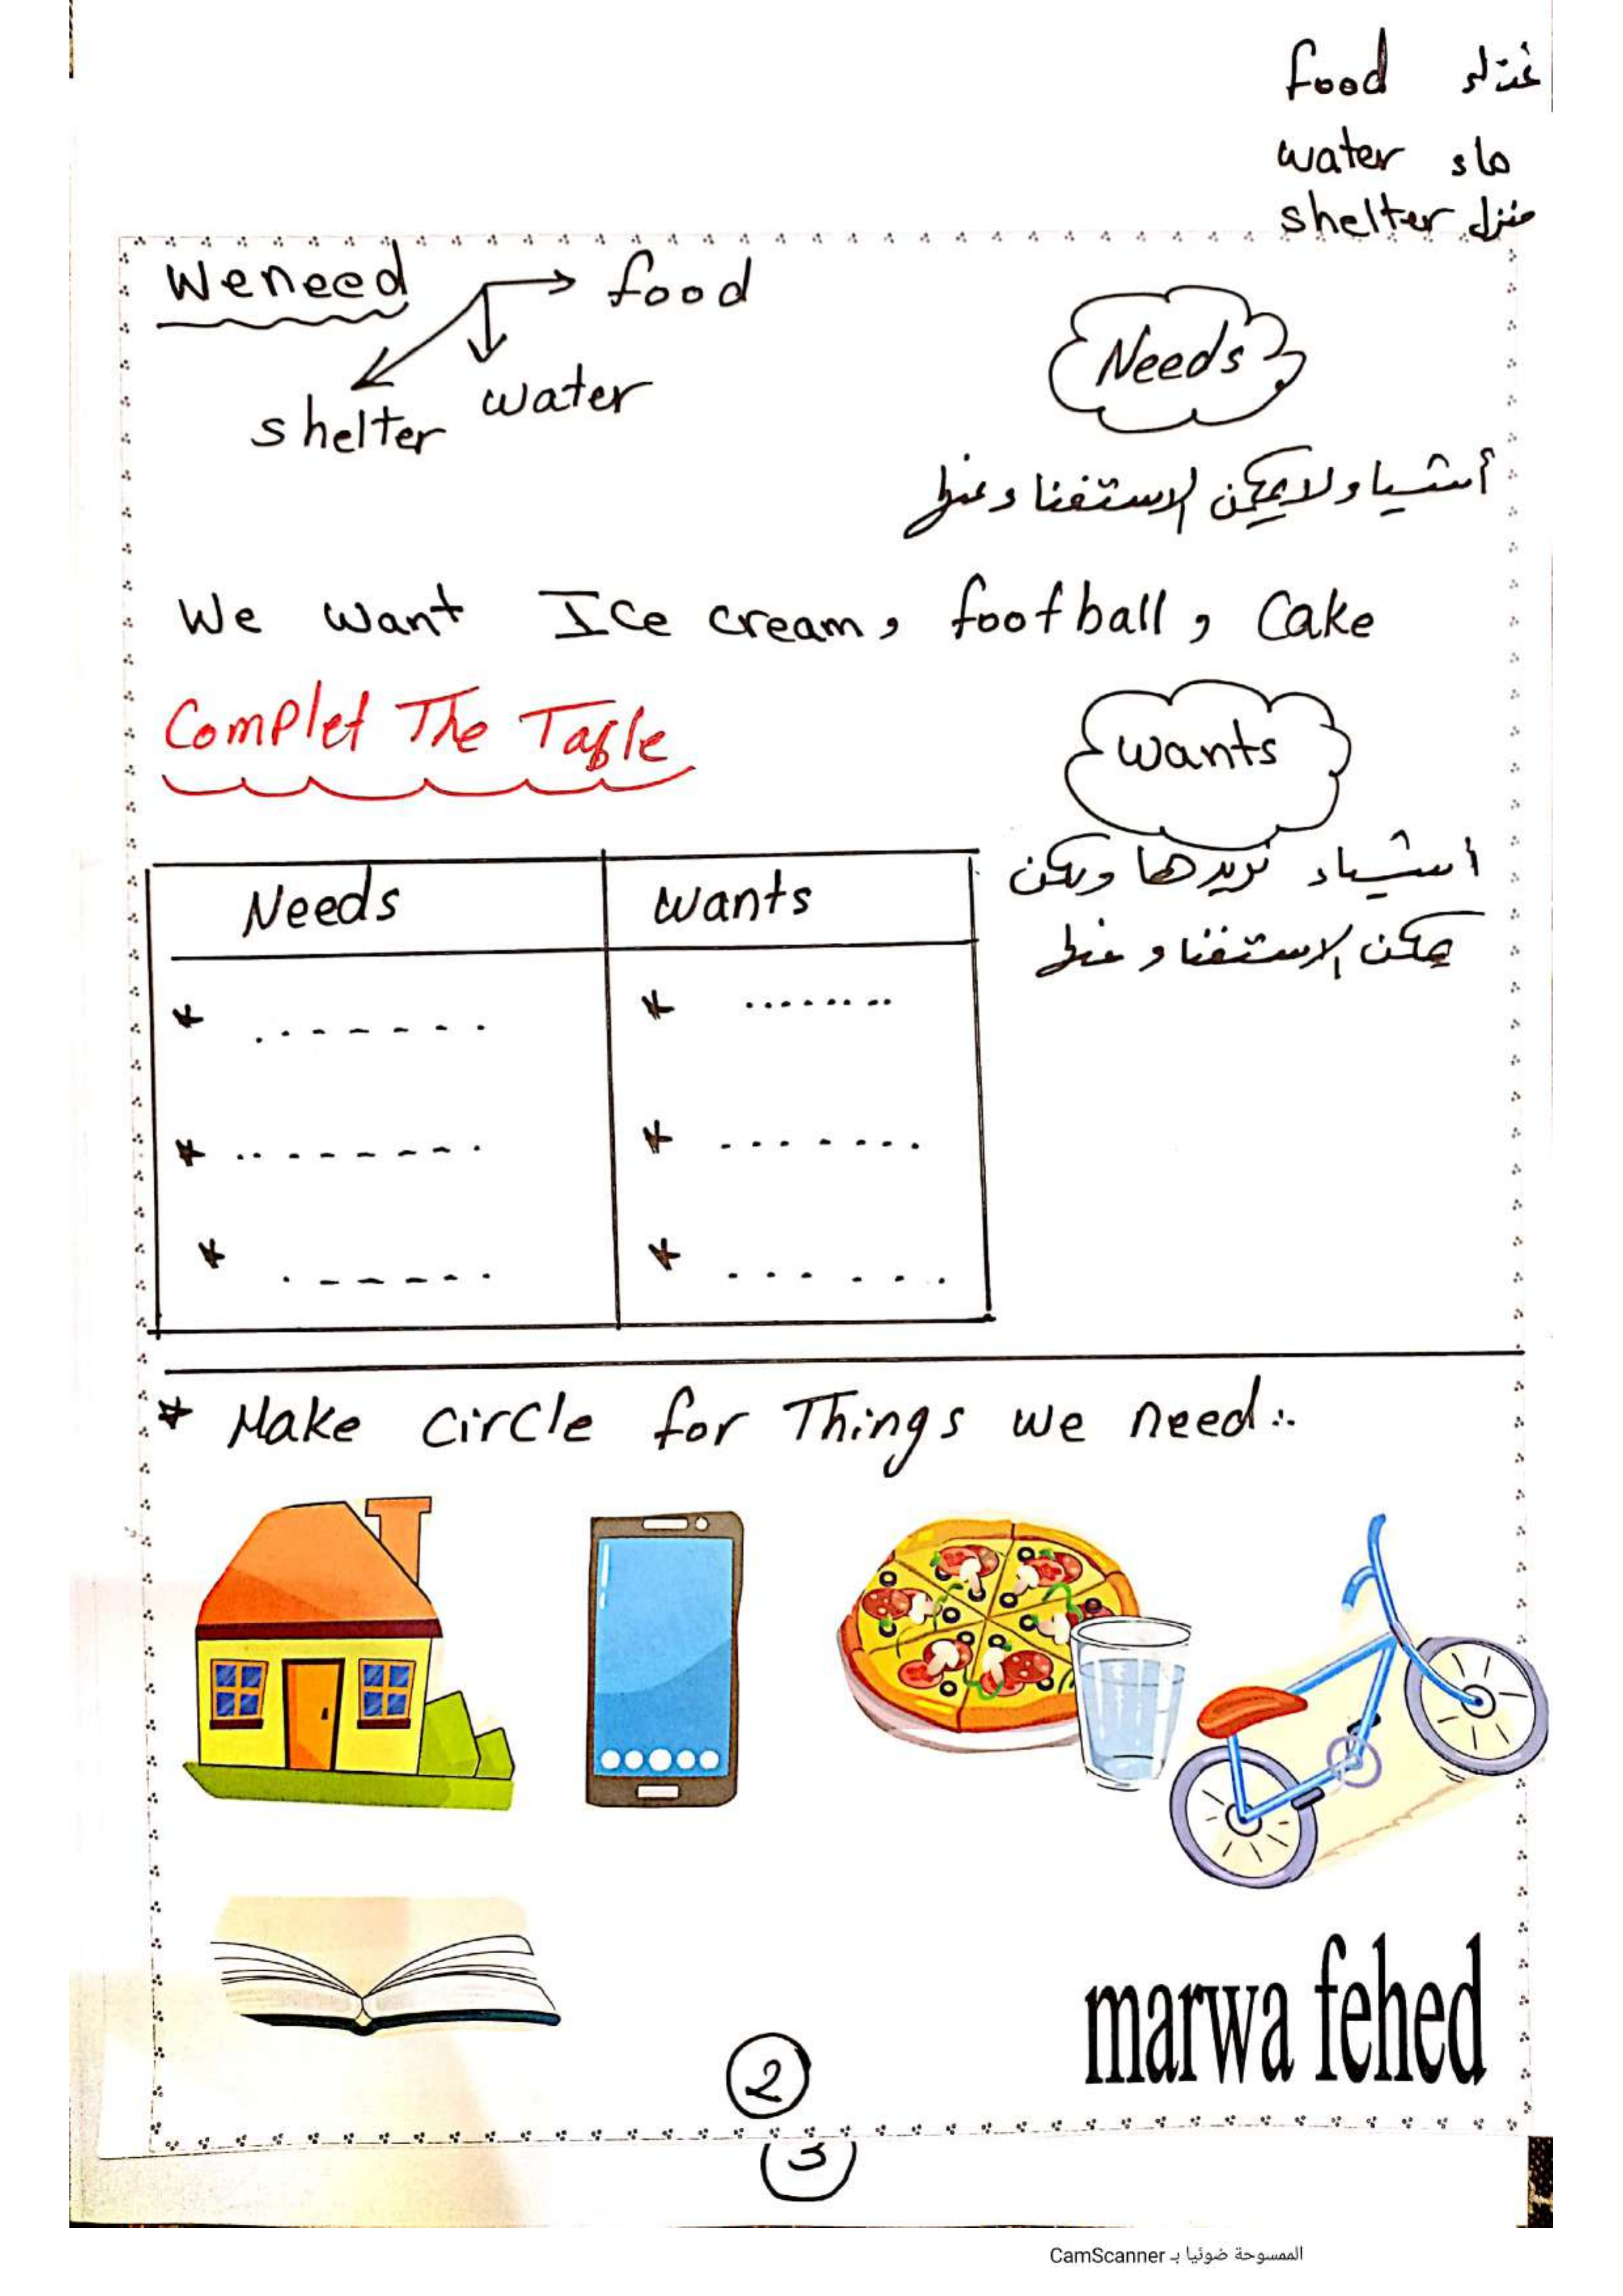 food غذاء
water ماء
shelter منزل
We need food
shelter water
Needs
أشياء لا يمكن الاستغناء عنها
We want Ice cream, football, Cake
Complet The Table
wants
أشياء نريدها ولكن
يمكن الاستغناء عنها
Needs wants
* ....... * ........
* ........ * .......
* ...... * ......
* Make circle for Things we need:.
marwa fehed
2
3
الممسوحة ضوئيا بـ CamScanner